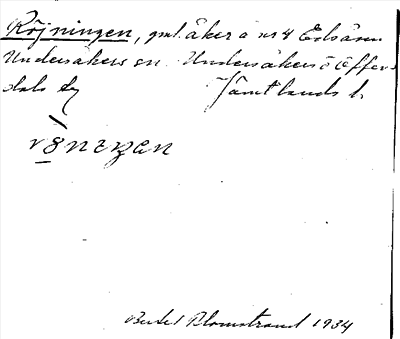 Röjningen, gml. åker å nr 4 Edsåsen
Undersåkers sn. Undersåkers o Offer-
dals tg Jämtlands l.
Bertel Blomstrand 1934